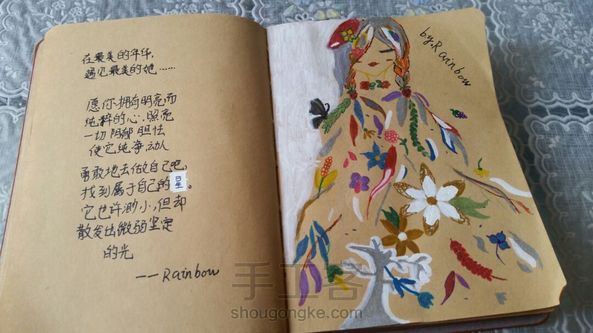 在最美的年华,
遇见最美的她……
愿你拥有明亮而
纯粹的心,照亮
一切阴郁胆怯
使它纯净动人
勇敢地去做自己吧,
找到属于自己的星。
它也许渺小,但却
散发出微弱坚定
的光
——Rainbow
by.Rainbow
手工客
shougongke.com